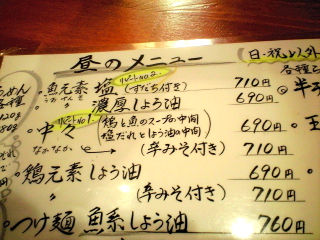 昼のメニュー
日・祝以外
各種
リピートNo.2
・魚元素 塩(すだち付き) 710円
うおげんそ
〃 濃厚しょう油 690円
リピートNo.1
・中々(鶏と魚のスープの中間
塩だれとしょう油の中間) 690円
なかなか
〃 (辛みそ付き) 710円
・鶏元素しょう油 690円
〃 (辛みそ付き) 710円
・つけ麺 魚系しょう油 760円
らーめん
各種
120g
180g